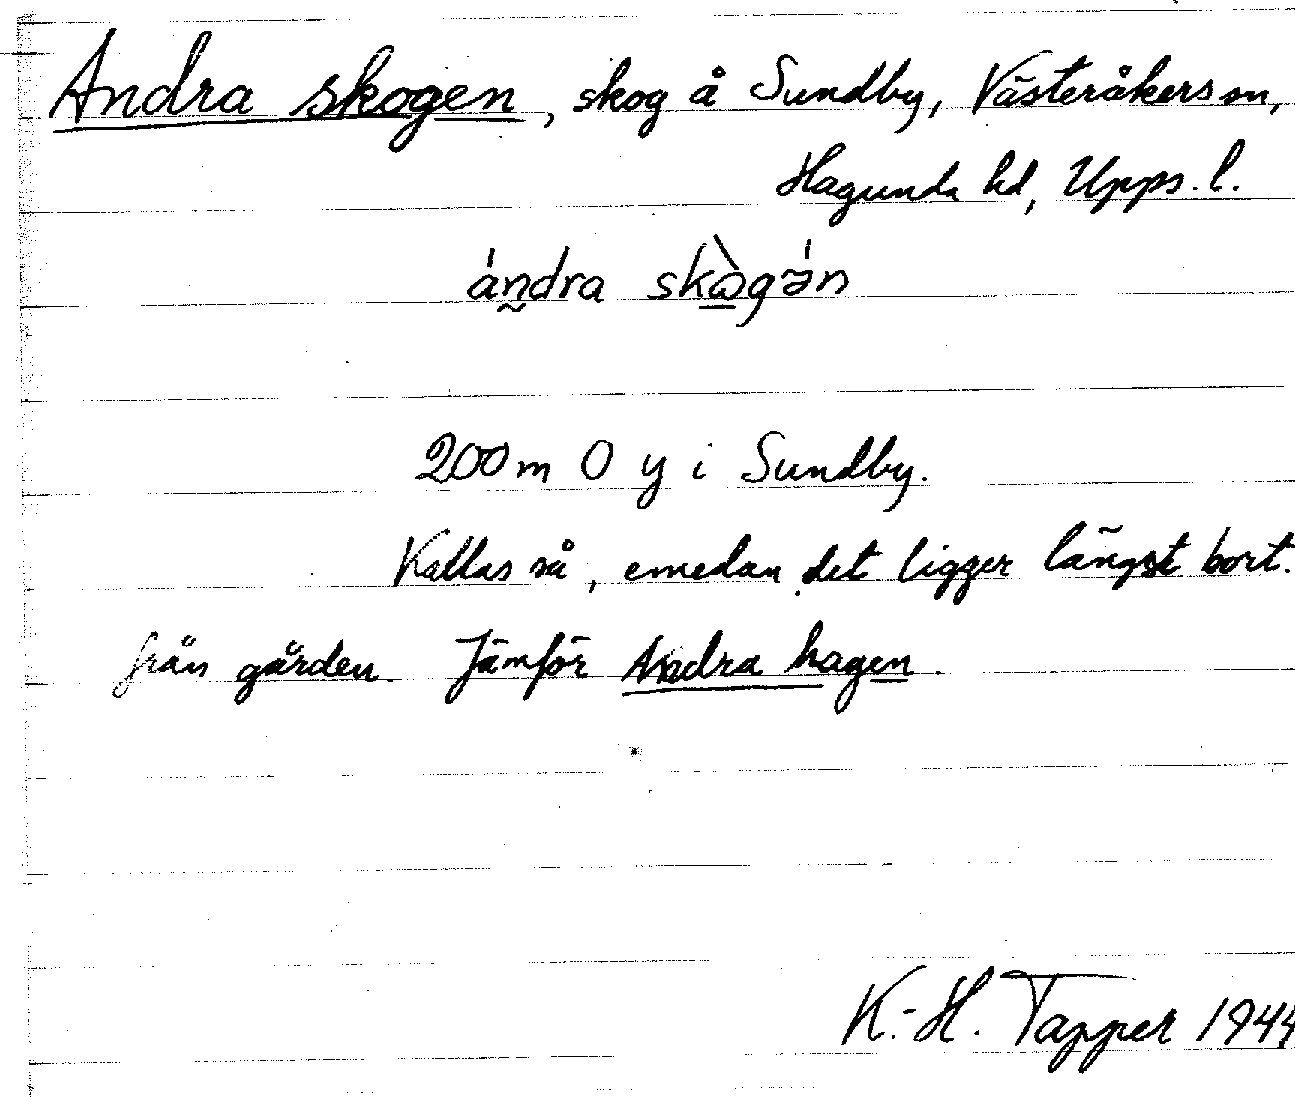 Andra skogen, skog å Sundby, Västeråkers sn,
Hagunda hd, Upps. l.
ándra skògə́n
200 m O y i Sundby.
Kallas så, emedan det ligger längst bort
från gården. Jämför Andra hagen.
K.-H. Tapper 1944